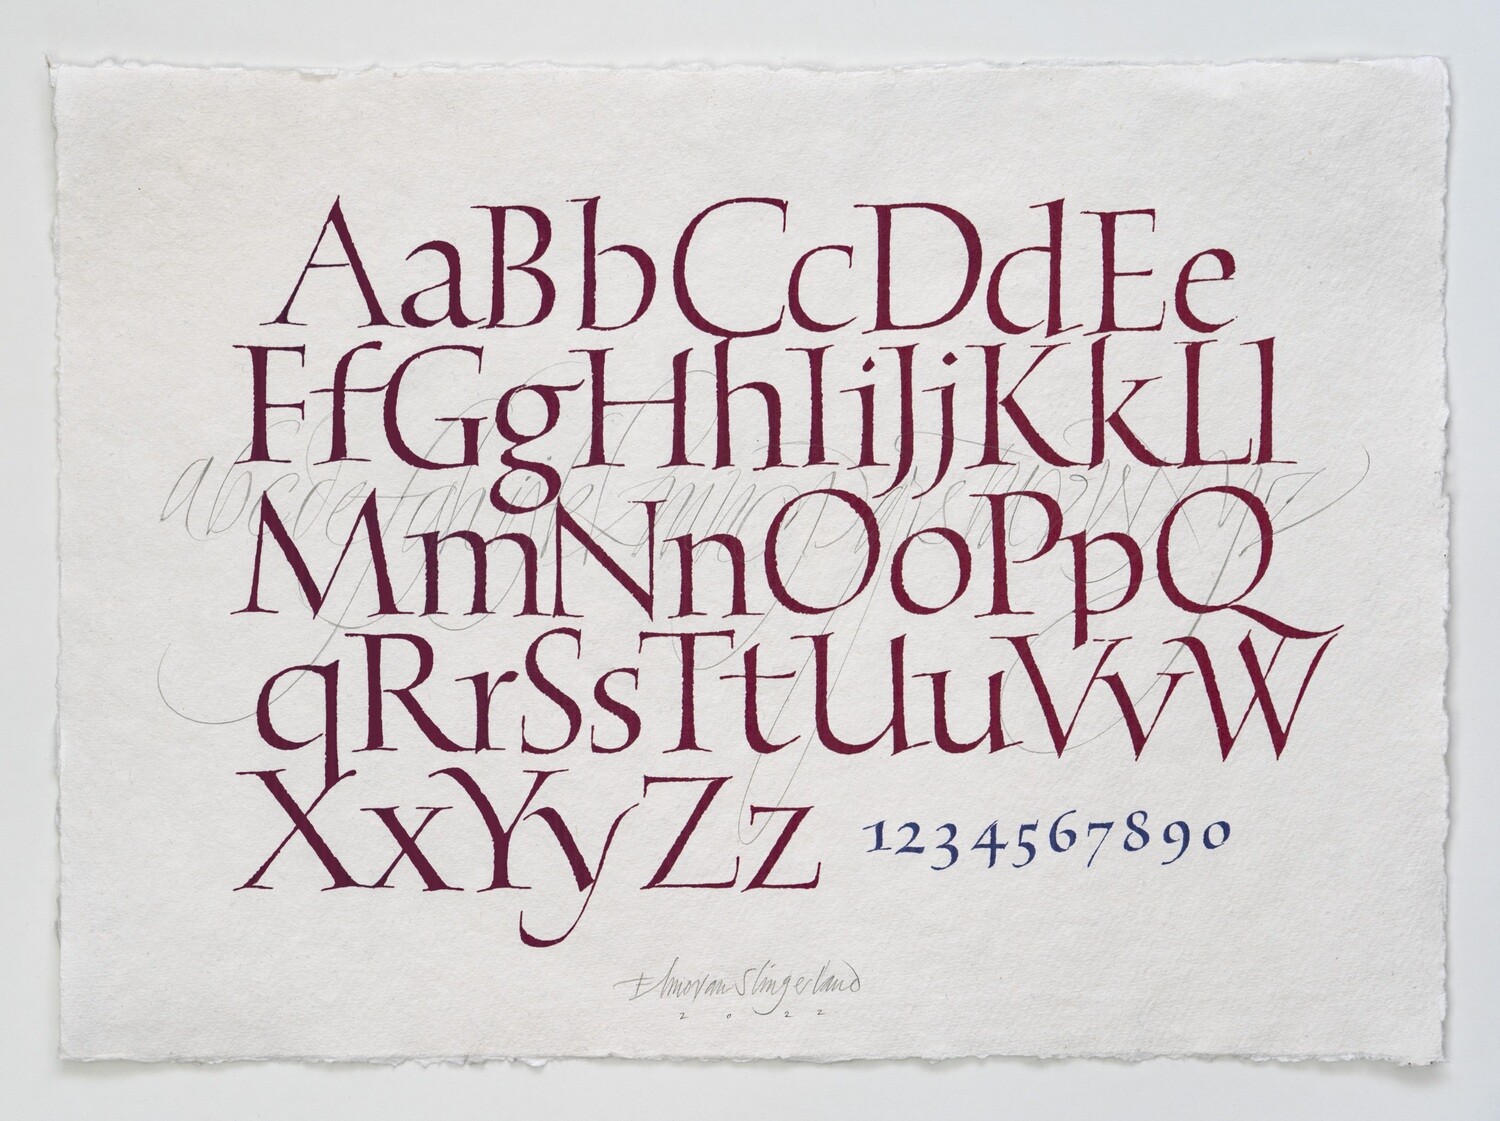 AaBbCcDdEe
FfGgHhIiJjKkLl
MmNnOoPpQ
qRrSsTtUuVvW
XxYyZz 1234567890
abcdefghijklmnopqrstuvwxyz
Elmo van Slingerland
2022